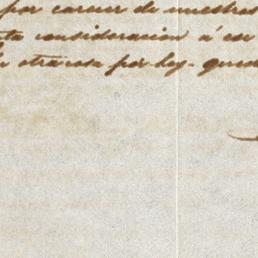 por carecer de nuestra
ta consideracion á cor
otra cosa por ley. qued